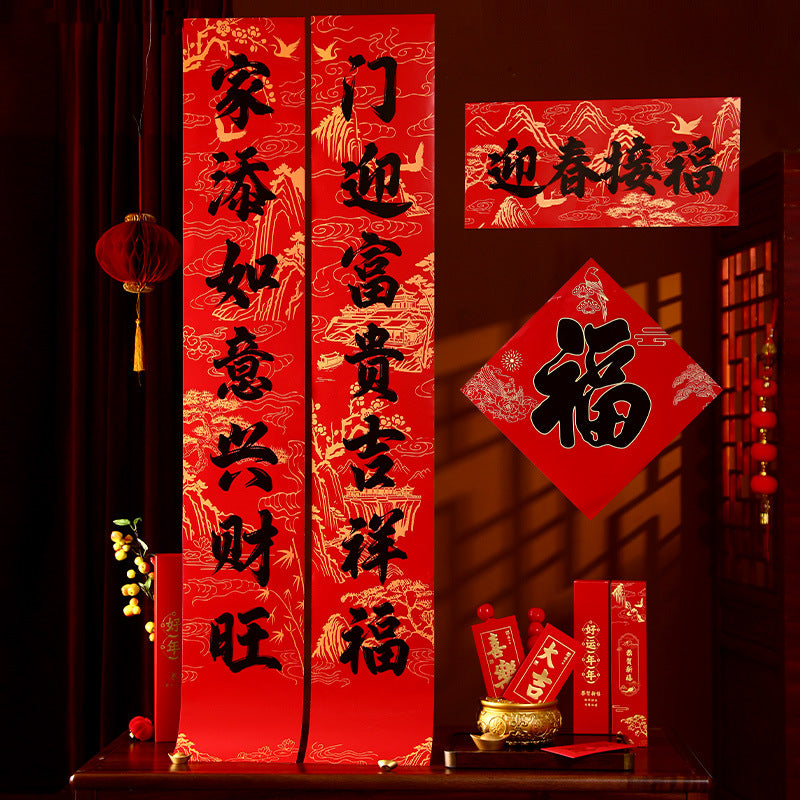 门迎富贵吉祥福
家添如意兴财旺
迎春接福
福
好年年
喜
大吉
好运年年
恭贺新禧
恭贺新禧